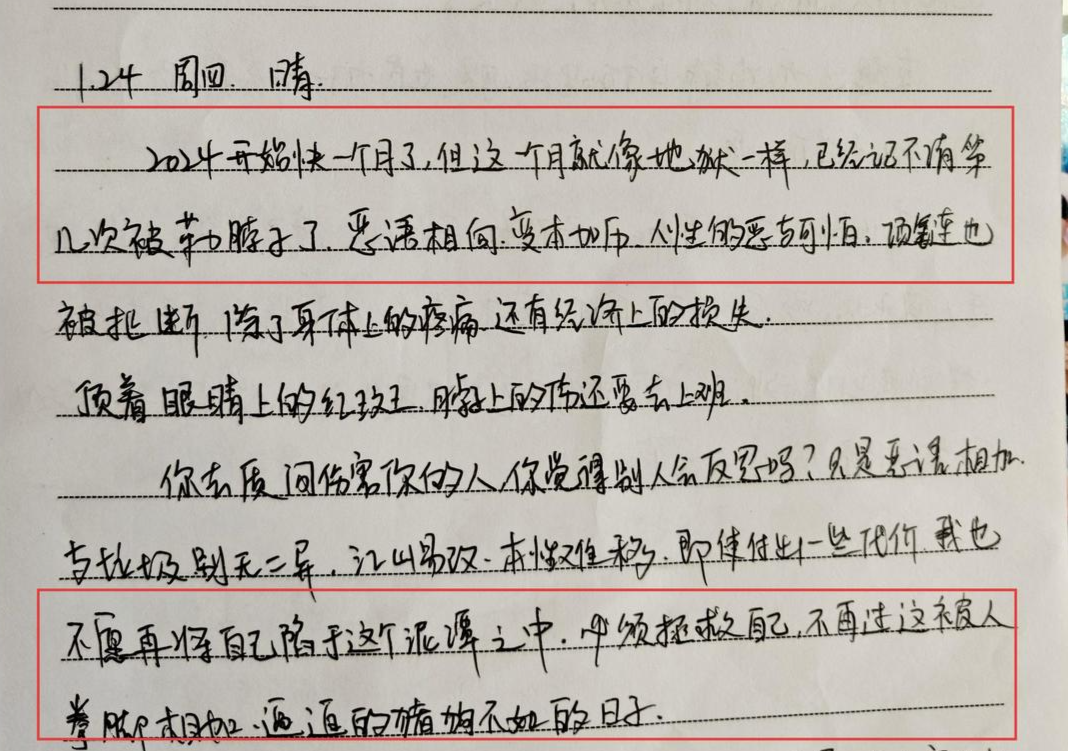 1.24 周四. 晴.
2024开始快一个月了,但这一个月就像地狱一样,已经记不清第
几次被勒脖子了.恶语相向.变本加厉.人性的恶与可怕.项链也
被扯断 除了身体上的疼痛 还有经济上的损失.
顶着眼睛上的红 脖子上的伤还要去上班.
你去质问伤害你的人,你觉得别人会反思吗?只是恶语相加.
与垃圾别无二异.江山易改.本性难移.即使付出一些代价 我也
不愿再将自己陷于这个泥潭之中.必须拯救自己.不再过这被人
拳脚相加.逼逼的猪狗不如的日子.